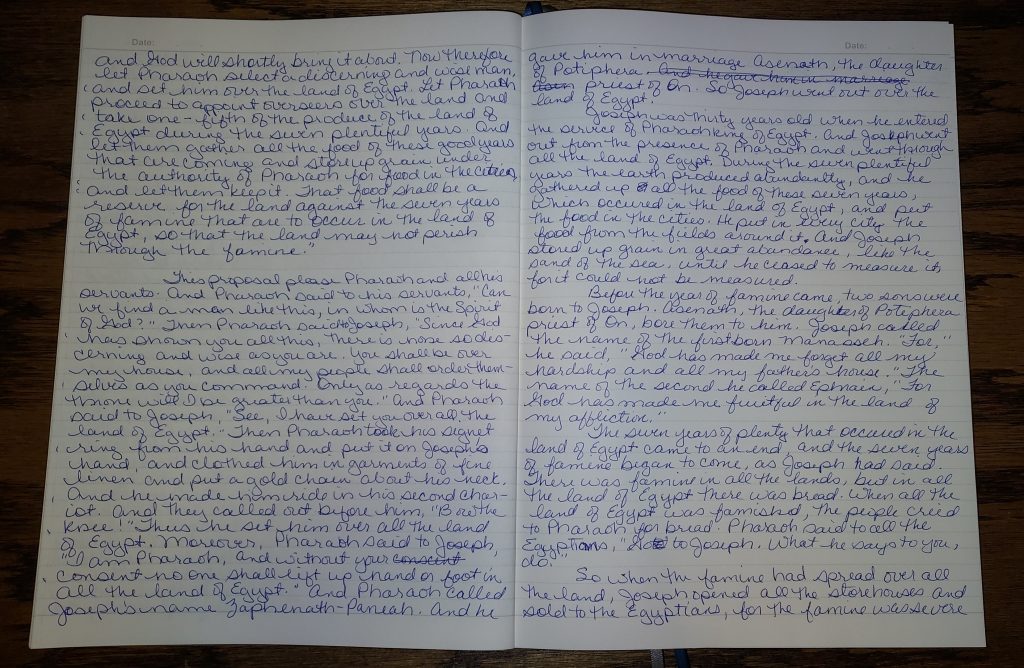 Date:
and God will shortly bring it about. Now therefore
let Pharaoh select a discerning and wise man,
and set him over the land of Egypt. Let Pharaoh
proceed to appoint overseers over the land and
take one-fifth of the produce of the land of
Egypt during the seven plentiful years. And
let them gather all the food of these good years
that are coming and store up grain under
the authority of Pharaoh for food in the cities,
and let them keep it. That food shall be a
reserve for the land against the seven years
of famine that are to occur in the land of
Egypt, so that the land may not perish
through the famine."
This proposal please Pharaoh and all his
servants. And Pharaoh said to his servants, "Can
we find a man like this, in whom is the Spirit
of God?" Then Pharaoh said to Joseph, "Since God
has shown you all this, there is none so dis-
cerning and wise as you are. You shall be over
my house, and all my people shall order them-
selves as you command. Only as regards the
throne will I be greater than you." And Pharaoh
said to Joseph, "See, I have set you over all the
land of Egypt." Then Pharaoh took his signet
ring from his hand and put it on Joseph's
hand, and clothed him in garments of fine
linen and put a gold chain about his neck.
And he made him ride in his second char-
iot. And they called out before him, "Bow the
knee!" Thus he set him over all the land
of Egypt. Moreover, Pharaoh said to Joseph,
"I am Pharaoh, and without your consent
consent no one shall lift up hand or foot in
all the land of Egypt." And Pharaoh called
Joseph's name Zaphenath-Paneah. And he
Date:
gave him in marriage Asenath, the daughter
of Potiphera, And he gave him in marriage
priest of On. So Joseph went out over the
land of Egypt.
Joseph was thirty years old when he entered
the service of Pharaoh king of Egypt. And Joseph went
out from the presence of Pharaoh and went through
all the land of Egypt. During the seven plentiful
years the earth produced abundantly, and he
gathered up all the food of these seven years,
which occured in the land of Egypt, and put
the food in the cities. He put in every city the
food from the fields around it. And Joseph
stored up grain in great abundance, like the
sand of the sea, until he ceased to measure it,
for it could not be measured.
Before the year of famine came, two sons were
born to Joseph. Asenath, the daughter of Potiphera
priest of On, bore them to him. Joseph called
the name of the firstborn Manasseh. "For,"
he said, "God has made me forget all my
hardship and all my father's house." The
name of the second he called Ephraim, "For
God has made me fruitful in the land of
my affliction."
The seven years of plenty that occured in the
land of Egypt came to an end, and the seven years
of famine began to come, as Joseph had said.
There was famine in all the lands, but in all
the land of Egypt there was bread. When all the
land of Egypt was famished, the people cried
to Pharaoh for bread. Pharaoh said to all the
Egyptians, "Go to Joseph. What he says to you,
do."
So when the famine had spread over all
the land, Joseph opened all the storehouses and
sold to the Egyptians, for the famine was severe